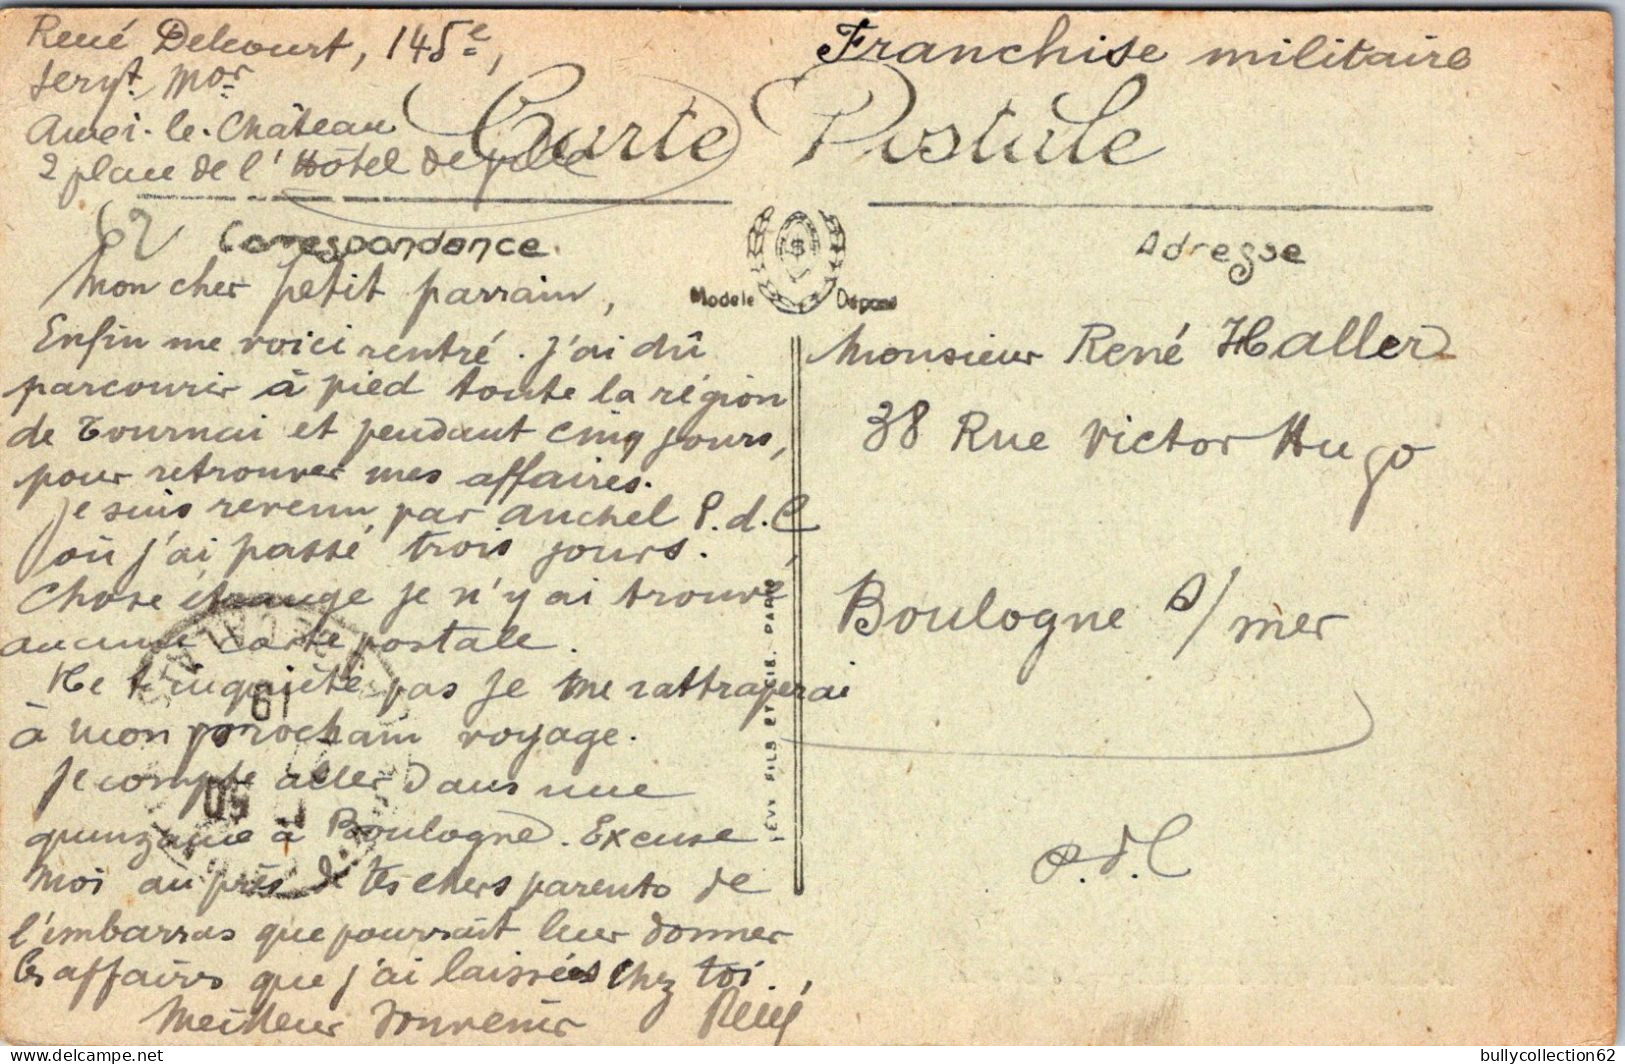 René Delcourt, 145e,
Sergt. Mor
Auxi-le-Château
2 place de l'Hôtel de ville
Franchise militaire
Carte Postale
62
Correspondance.
Adresse
Modèle Déposé
Mon cher petit parrain,
Enfin me voici rentré. J'ai dû
parcourir à pied toute la région
de Tournai et pendant cinq jours,
pour retrouver mes affaires.
Je suis revenu par Auchel P.d.C
où j'ai passé trois jours.
Chose étrange je n'y ai trouvé
aucune carte postale.
Ne t'inquiète pas je me rattraperai
à mon prochain voyage.
Je compte aller dans une
quinzaine à Boulogne. Excuse
moi auprès de tes chers parents de
l'embarras que pourrait leur donner
les affaires que j'ai laissées chez toi.
Meilleur souvenir René
LÉVY FILS ET CIE. PARIS
Monsieur René Haller
38 Rue Victor Hugo
Boulogne s/mer
P.d.C
19
bullycollection62